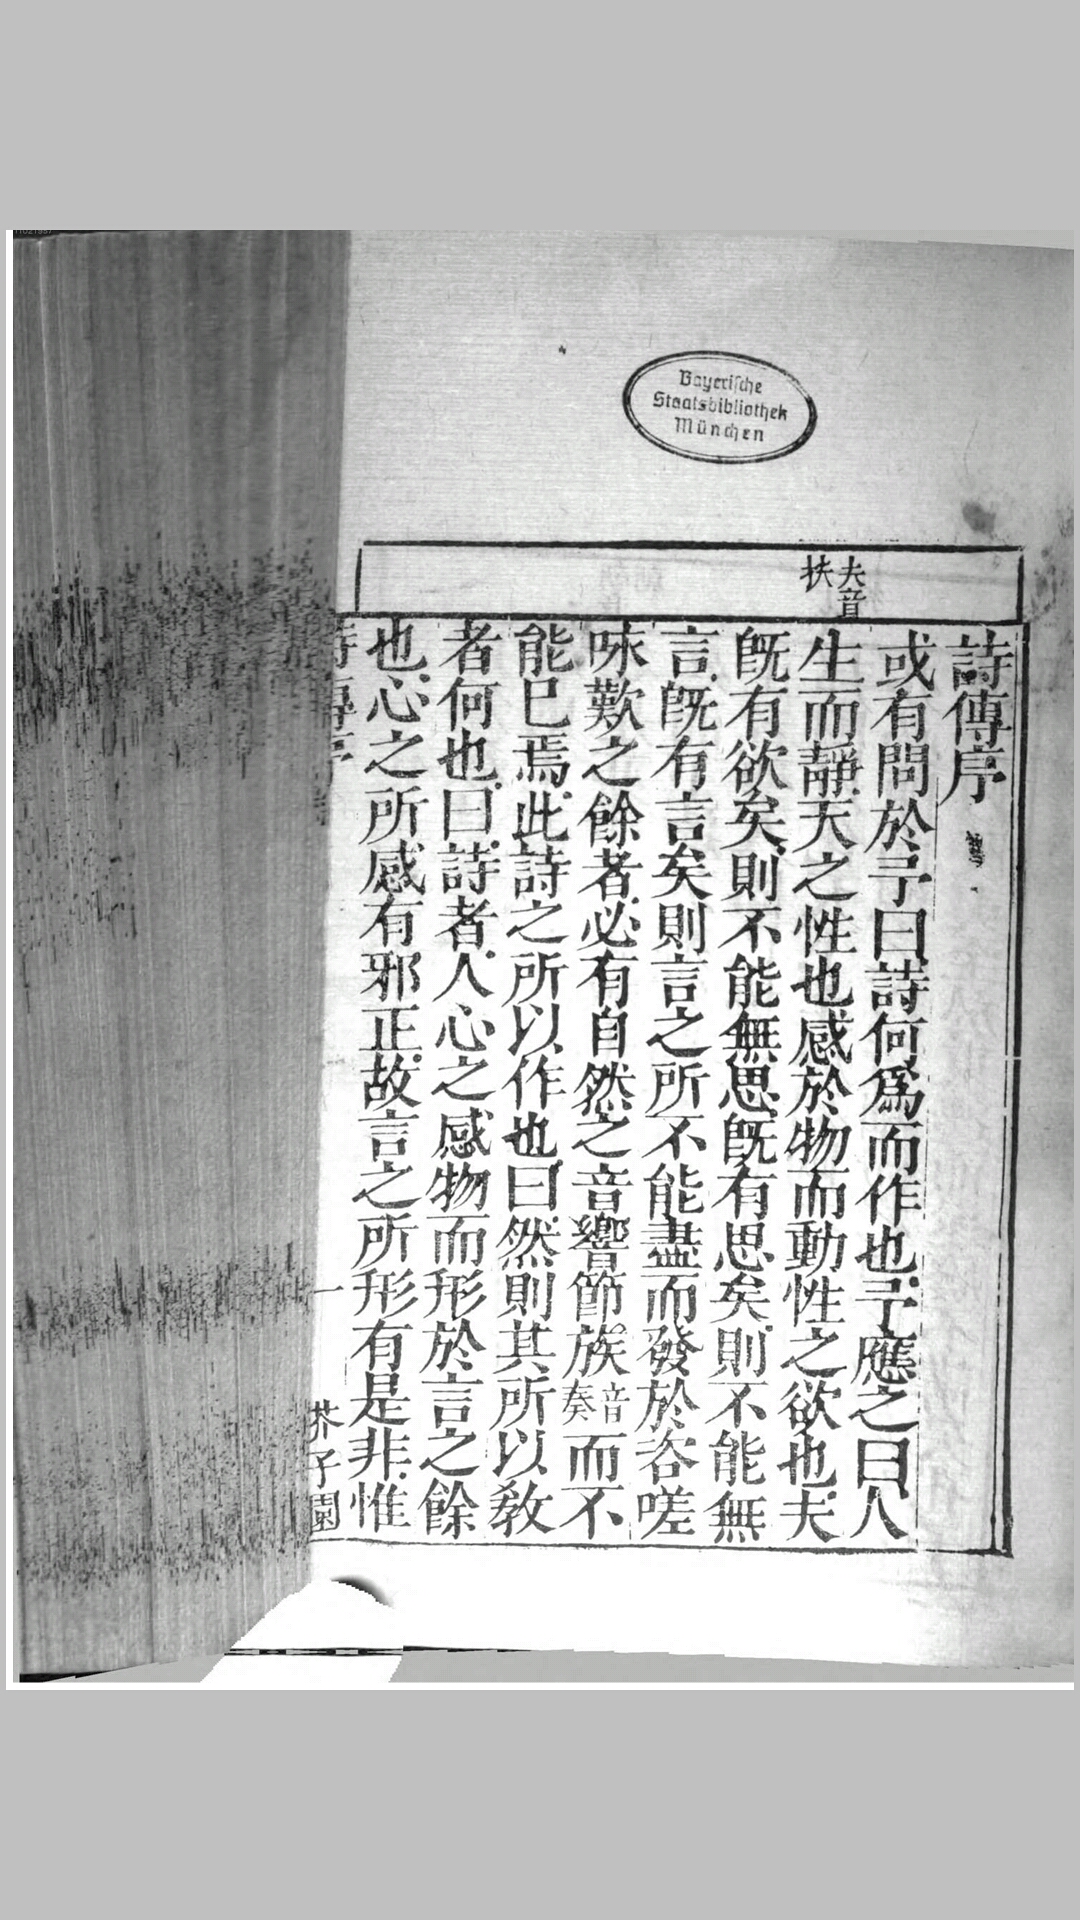 Bayerische
Staatsbibliothek
München
夫音
扶
詩傳序
或有問於予曰詩何爲而作也予應之曰人
生而靜天之性也感於物而動性之欲也夫
既有欲矣則不能無思既有思矣則不能無
言既有言矣則言之所不能盡而發於咨嗟
咏歎之餘者必有自然之音響節族音奏而不
能已焉此詩之所以作也曰然則其所以敎
者何也曰詩者人心之感物而形於言之餘
也心之所感有邪正故言之所形有是非惟
詩傳序
一
芥子園